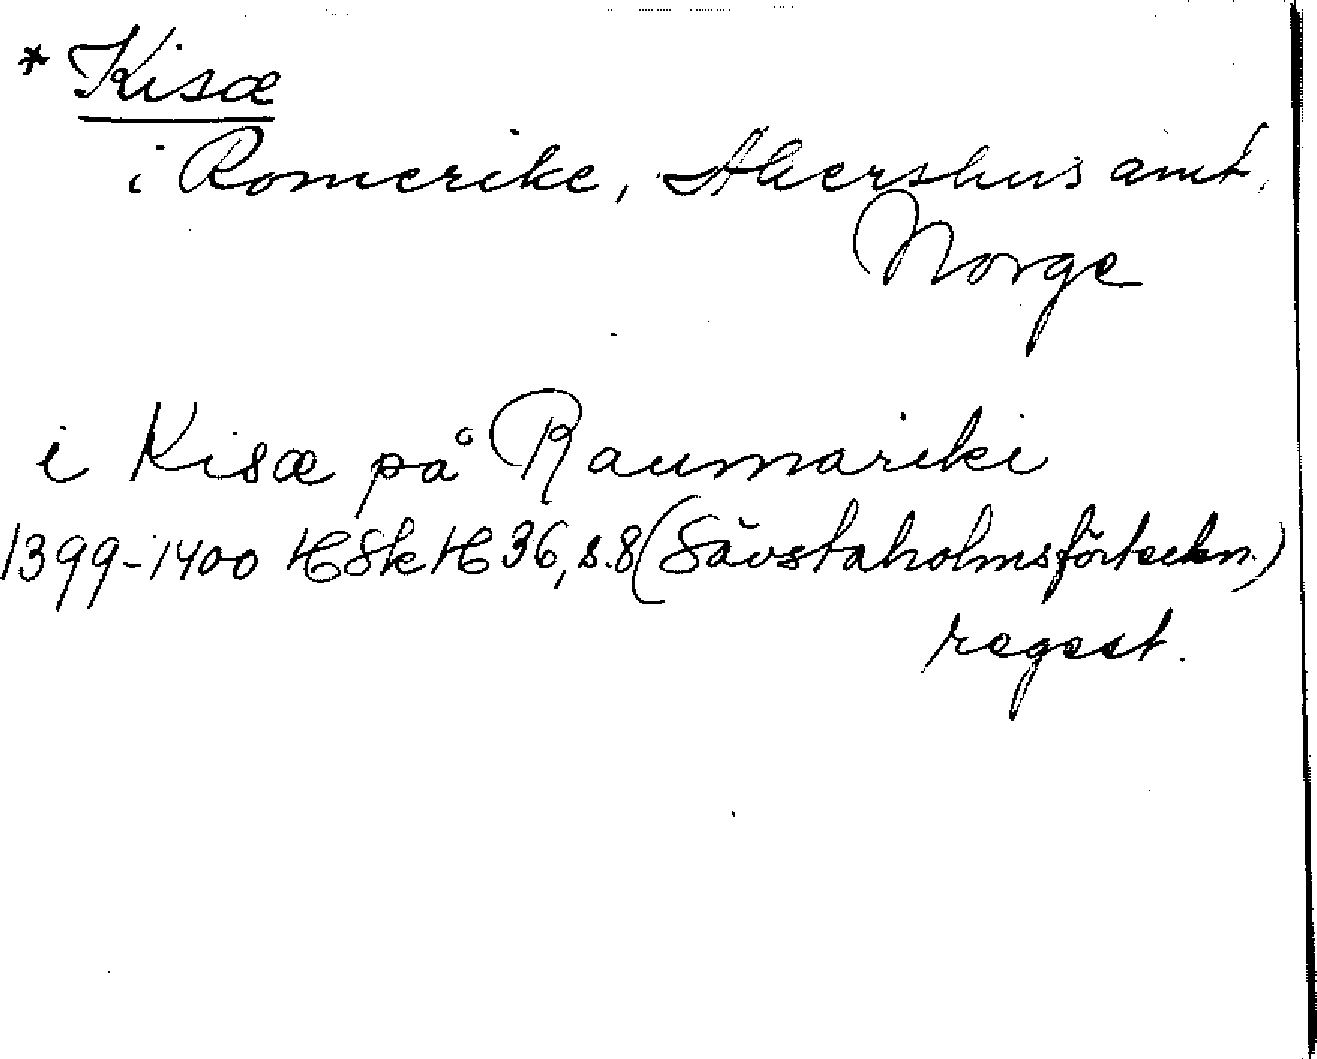 * Kisæ
i Romerike, Akershus amt,
Norge
i Kisæ på Raumariki
1399-1400 HSkH 36, s.8 (Sävstaholmsförteckn.)
regest.